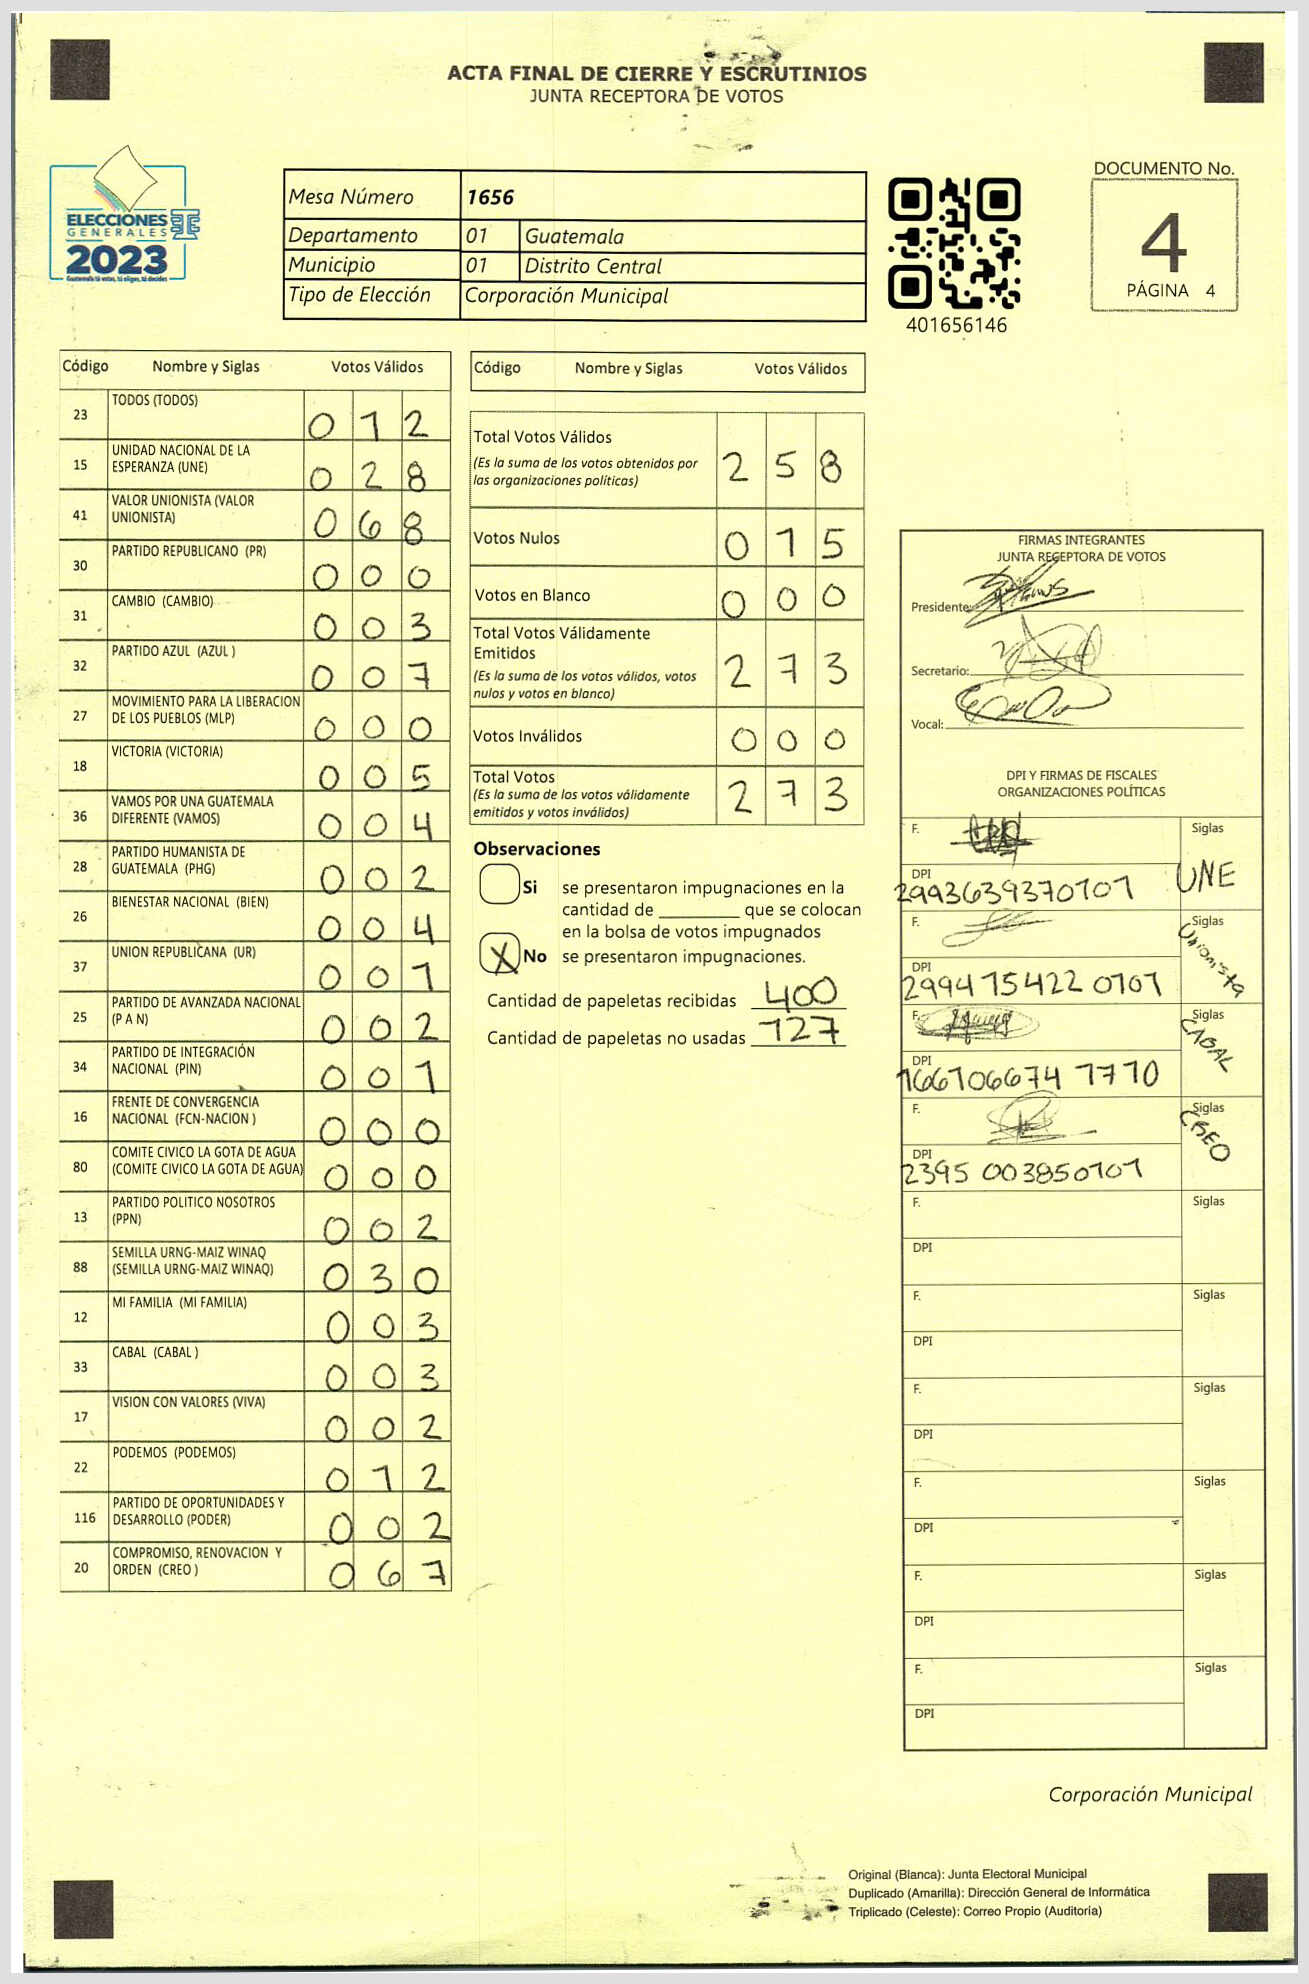 ACTA FINAL DE CIERRE Y ESCRUTINIOS
JUNTA RECEPTORA DE VOTOS
ELECCIONES
GENERALES
2023
Guatemala tú votas, tú eliges, tú decides
Mesa Número 1656
Departamento 01 Guatemala
Municipio 01 Distrito Central
Tipo de Elección Corporación Municipal
401656146
DOCUMENTO No.
4
PÁGINA 4
Código Nombre y Siglas Votos Válidos
23 TODOS (TODOS) 0 1 2
15 UNIDAD NACIONAL DE LA
ESPERANZA (UNE) 0 2 8
41 VALOR UNIONISTA (VALOR
UNIONISTA) 0 6 8
30 PARTIDO REPUBLICANO (PR) 0 0 0
31 CAMBIO (CAMBIO) 0 0 3
32 PARTIDO AZUL (AZUL ) 0 0 7
27 MOVIMIENTO PARA LA LIBERACION
DE LOS PUEBLOS (MLP) 0 0 0
18 VICTORIA (VICTORIA) 0 0 5
36 VAMOS POR UNA GUATEMALA
DIFERENTE (VAMOS) 0 0 4
28 PARTIDO HUMANISTA DE
GUATEMALA (PHG) 0 0 2
26 BIENESTAR NACIONAL (BIEN) 0 0 4
37 UNION REPUBLICANA (UR) 0 0 1
25 PARTIDO DE AVANZADA NACIONAL
(P A N) 0 0 2
34 PARTIDO DE INTEGRACIÓN
NACIONAL (PIN) 0 0 1
16 FRENTE DE CONVERGENCIA
NACIONAL (FCN-NACION ) 0 0 0
80 COMITE CIVICO LA GOTA DE AGUA
(COMITE CIVICO LA GOTA DE AGUA) 0 0 0
13 PARTIDO POLITICO NOSOTROS
(PPN) 0 0 2
88 SEMILLA URNG-MAIZ WINAQ
(SEMILLA URNG-MAIZ WINAQ) 0 3 0
12 MI FAMILIA (MI FAMILIA) 0 0 3
33 CABAL (CABAL ) 0 0 3
17 VISION CON VALORES (VIVA) 0 0 2
22 PODEMOS (PODEMOS) 0 1 2
116 PARTIDO DE OPORTUNIDADES Y
DESARROLLO (PODER) 0 0 2
20 COMPROMISO, RENOVACION Y
ORDEN (CREO ) 0 6 7
Código Nombre y Siglas Votos Válidos
Total Votos Válidos
(Es la suma de los votos obtenidos por
las organizaciones políticas) 2 5 8
Votos Nulos 0 1 5
Votos en Blanco 0 0 0
Total Votos Válidamente
Emitidos
(Es la suma de los votos válidos, votos
nulos y votos en blanco) 2 7 3
Votos Inválidos 0 0 0
Total Votos
(Es la suma de los votos válidamente
emitidos y votos inválidos) 2 7 3
Observaciones
Si se presentaron impugnaciones en la
cantidad de ________ que se colocan
en la bolsa de votos impugnados
X No se presentaron impugnaciones.
Cantidad de papeletas recibidas 400
Cantidad de papeletas no usadas 127
FIRMAS INTEGRANTES
JUNTA RECEPTORA DE VOTOS
Presidente:
Secretario:
Vocal:
DPI Y FIRMAS DE FISCALES
ORGANIZACIONES POLÍTICAS
F. Siglas
DPI UNE
2993639370101
F. Siglas
DPI Unionista
2994 15422 0101
F. Siglas
DPI CABAL
166106674 1710
F. Siglas
DPI CREO
2395 003850101
F. Siglas
DPI
F. Siglas
DPI
F. Siglas
DPI
F. Siglas
DPI
F. Siglas
DPI
F. Siglas
DPI
Corporación Municipal
Original (Blanca): Junta Electoral Municipal
Duplicado (Amarilla): Dirección General de Informática
Triplicado (Celeste): Correo Propio (Auditoría)